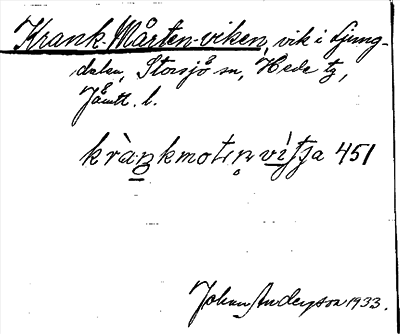 Krank-Mårten-viken, vik i Ljung-
dalen, Storsjö sn, Hede tg,
Jämtl. l.
krànkmotɩṇvítʃa 451
Johan Anderson 1933.